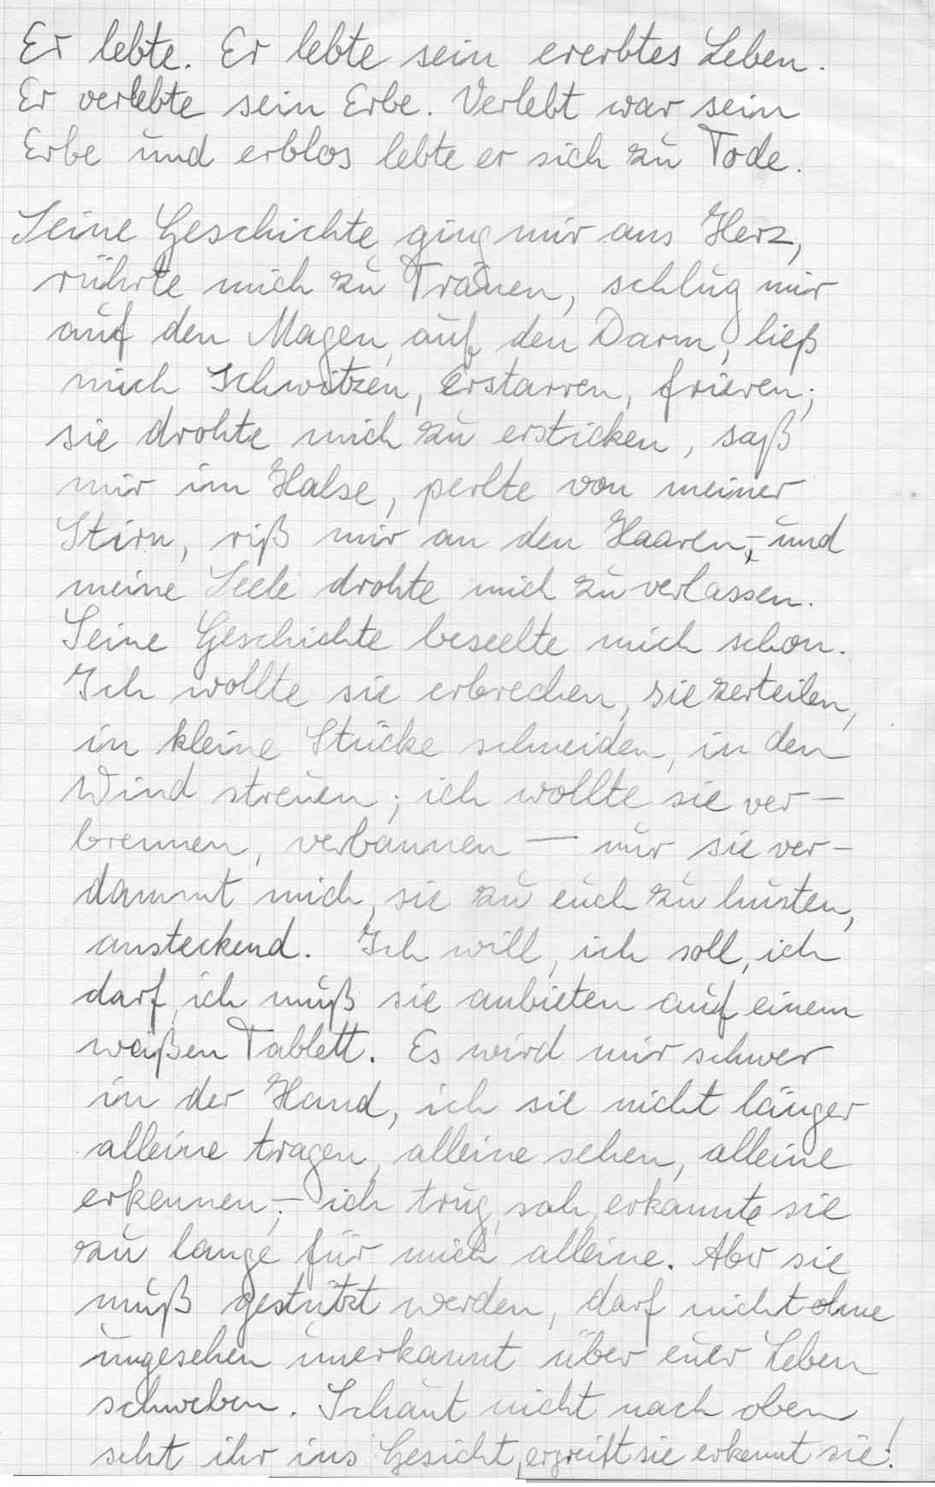 Er lebte. Er lebte sein ererbtes Leben.
Er verlebte sein Erbe. Verlebt war sein
Erbe und erblos lebte er sich zu Tode.
Seine Geschichte ging mir ans Herz,
rührte mich zu Tränen, schlug mir
auf den Magen, auf den Darm, ließ
mich schwitzen, erstarren, frieren;
sie drohte mich zu ersticken, saß
mir im Halse, perlte von meiner
Stirn, riß mir an den Haaren,- und
meine Seele drohte mich zu verlassen.
Seine Geschichte beseelte mich schon.
Ich wollte sie erbrechen, sie zerteilen,
in kleine Stücke schneiden, in den
Wind streuen; ich wollte sie ver-
brennen, verbannen — nur sie ver-
dammt mich, sie zu euch zu husten,
ansteckend. Ich will, ich soll, ich
darf, ich muß sie anbieten auf einem
weißen Tablett. Es wird mir schwer
in der Hand, ich sie nicht länger
alleine tragen, alleine sehen, alleine
erkennen,- ich trug, sah, erkannte sie
zu lange für mich alleine. Aber sie
muß gestützt werden, darf nicht ohne
ungesehen unerkannt über euer Leben
schweben. Schaut nicht nach oben
seht ihr ins Gesicht, ergreift sie erkennt sie!